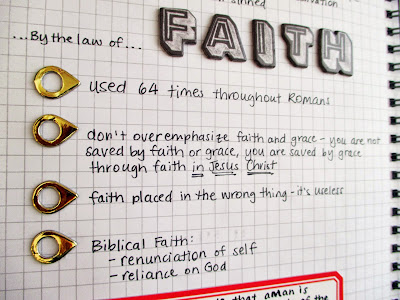 sinned
...By the law of...
FAITH
used 64 times throughout Romans
don't overemphasize faith and grace - you are not
saved by faith or grace, you are saved by grace
through faith in Jesus Christ
faith placed in the wrong thing - it's useless
Biblical Faith:
- renunciation of self
- reliance on God
that a man is
of the